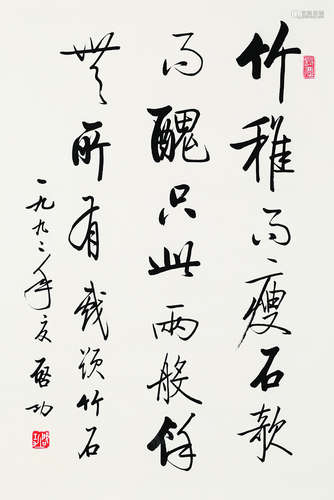 竹稚而瘦石款
而醜只此兩般餘
無所有戲頌竹石
一九九二年夏啓功